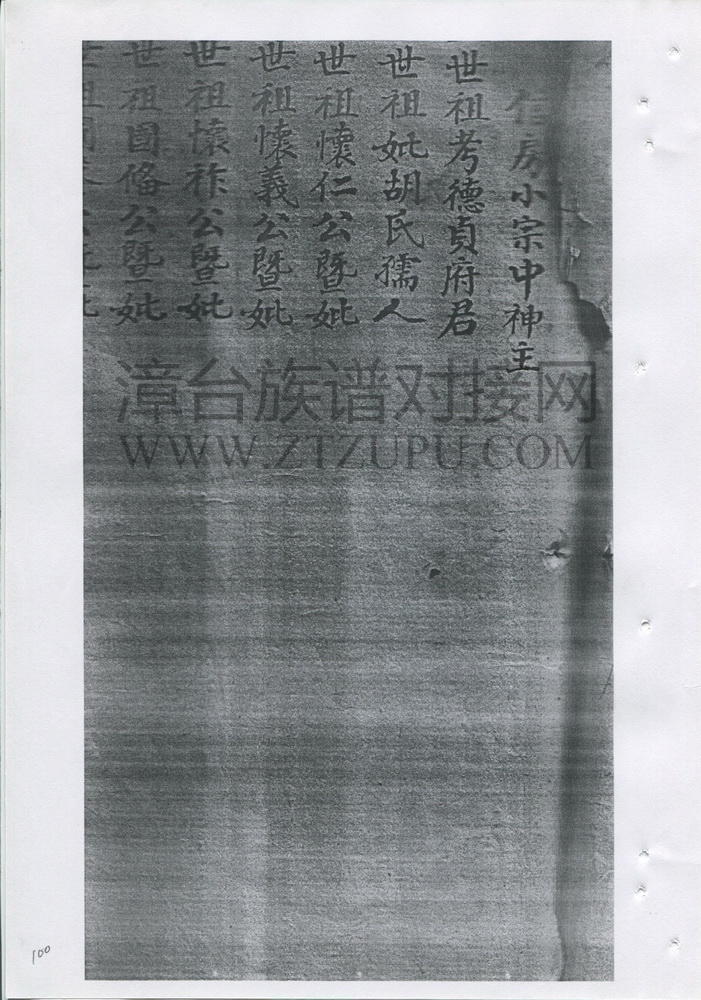 信房小宗中神主
世祖考德貞府君
世祖妣胡氏孺人
世祖懷仁公暨妣
世祖懷義公暨妣
世祖懷祚公暨妣
世祖國俻公暨妣
世祖國公妣
漳台族谱对接网
WWW.ZTZUPU.COM
100